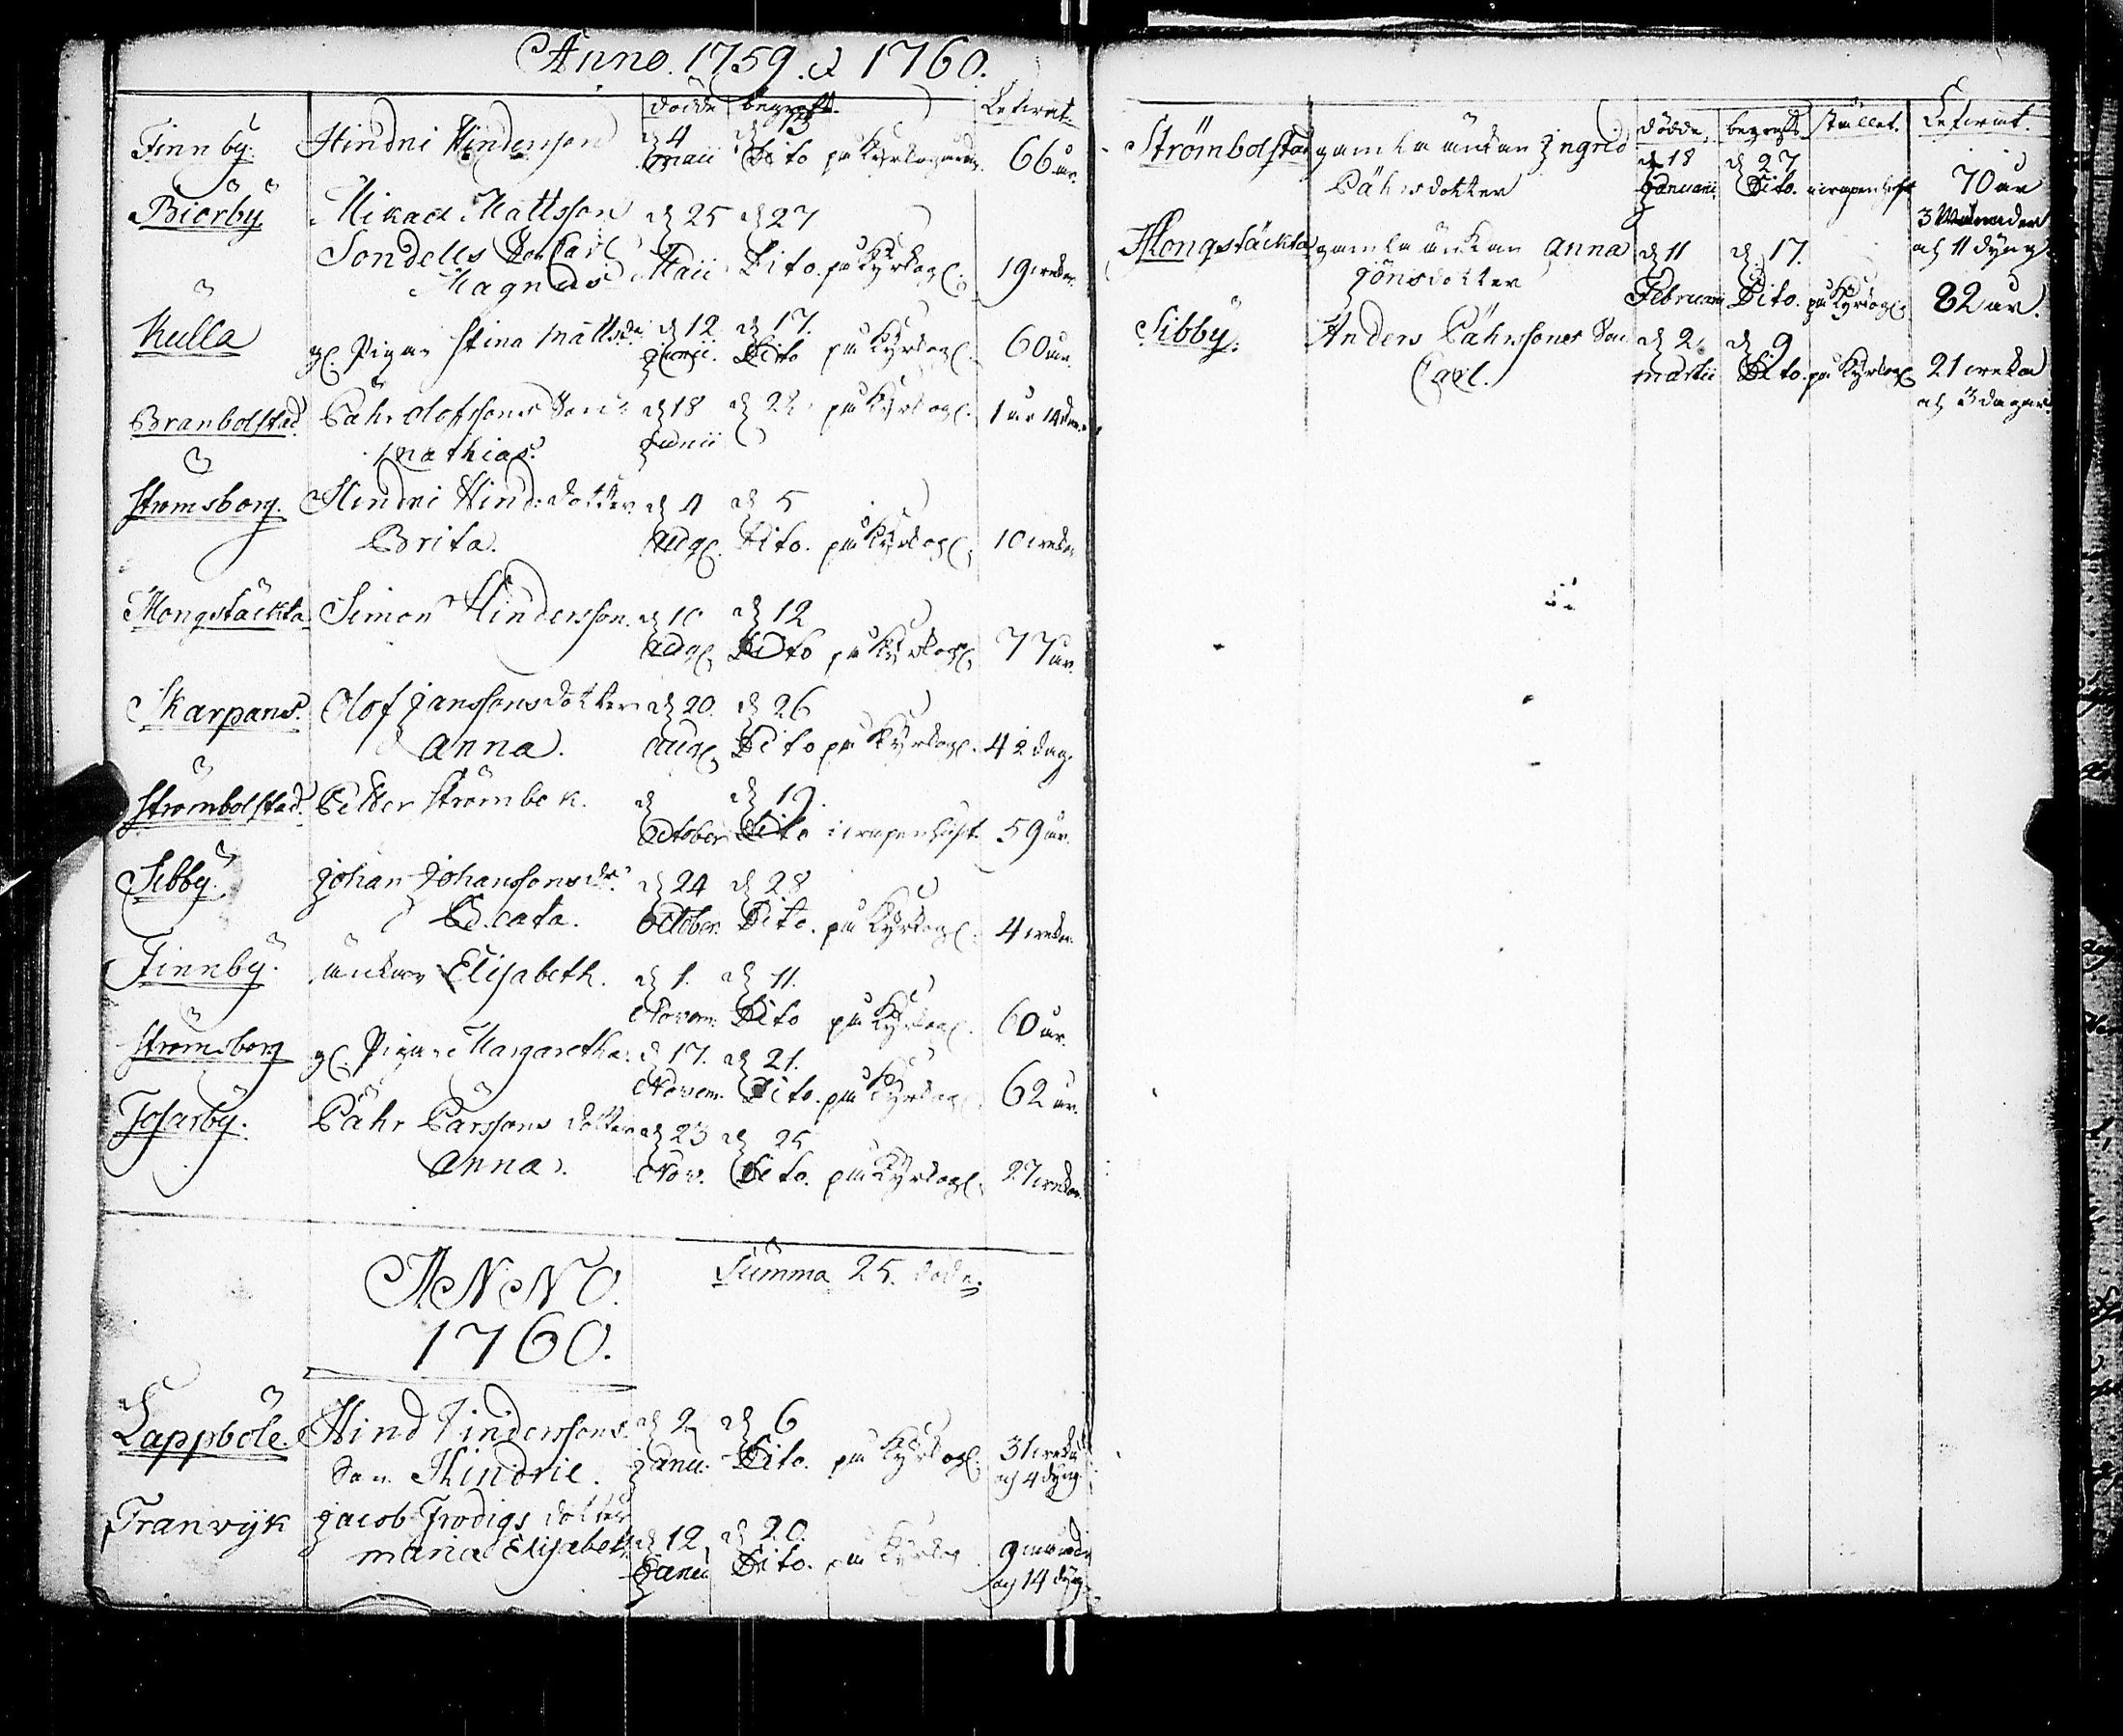 Anno. 1759. & 1760.
dödde begrafts. Lefwat.
Finnby. Hindric Hindersson d 4 Maii d 13 Dito på Kyrkogården. 66 år.
Biörby. Mikael Mattsson
Sondells Son Carl Magnus d 25 Maii d 27 Dito. på Kyrkog. 19 wekor.
Kulla gl. Pigan Stina Mattsdr d 12 Junii. d 17. Dito på Kyrkog. 60 år.
Branbolstad. Pähr Olofssons Son Mathias. d 18 Junii d 22 på Kyrkog. 1 år 14
Strömsborg. Hindric Hind: dotter Brita. d 4 Aug. d 5 Dito. på Kyrkog. 10 wekor
Mongstäckta Simon Hindersson. d 10 Aug. d 12 Dito på Kyrkog. 77 år.
Skarpans. Olof Janssons dotter Anna. d 20. Aug. d 26 Dito på Kyrkog. 42 dag.
Strömbolstad. Petter Strömbek. d October d 19. Dito i wapenhuset. 59 år.
Sibby. Johan Johanssons dr. Beata. d 24 October. d 28 Dito. på Kyrkog. 4 wekor.
Finnby. änkan Elisabeth. d 1. Novem: d 11. Dito på Kyrkog. 60 år.
Strömsborg gl. Pigan Margaretha. d 17. Novem. d 21. Dito. på Kyrkog. 62 år.
Tosarby. Pähr Pärssons dotter Anna. d 23 Nov. d 25 Dito. på Kyrkog. 27 wekor.
Summa 25. döde.
ANNO.
1760.
Lappböle. Hind Hinderssons Son Hindric. d 2 Janu: d 6 Dito. på Kyrkog. 31 wekor och 4 dyng.
Tranvijk Jacob Frodigs dotter Maria Elisabeth. d 12 Janu d 20. Dito. på Kyrkog. 9 månader och 14 dyng.
dödde, begrafts stället. Lefwat.
Strömbolstad gamla änkan Ingrid Pährsdotter d 18 Januarii d 27 Dito. i wapenhuset 70 år 3 Månader och 11 dyng.
Mongstäckta gamla änkan Anna Jönsdotter d 11 Februarii d 17. Dito. på Kyrkog. 82 år.
Sibby. Anders Pährssones Son Carl. d 2. Martii d 9 Dito. på Kyrkog. 21 wekor och 3 dagar.